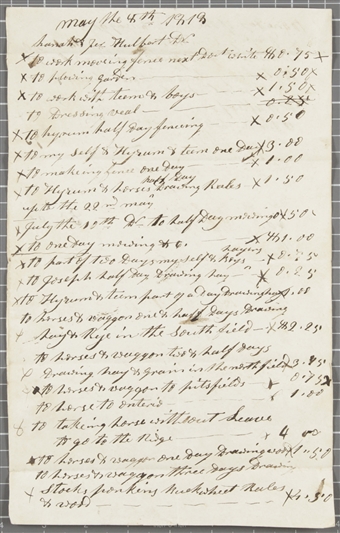 may the 8th 1818
Jos Hulburt Dr
X to work moving fence next X 0.75 X
X to plowing garden X 0.50 X
X to work with teem & boys X 1.50 X
to Dressing veal 0.25
X to hyrum half day fencing X 0.50
X to my self & Hyrum & teem one Day X 3.00
X to making fence one day X 1.00
half day
X to Hyrum & horses Drawing Rales X 1.50
up to the 22nd may
X July the to half Day mowing X 50
X to one day mowing & c. X 1.00
haying
X to part of two Days my self & boys X 0.75
X to Joseph half Day Drawing hay X 0.25
X to Hyrum & teem part of a Day Drawing hay X 1.00
to horses & waggon one & half Days Drawing
hay & Rye in the South field X 2.25
to horses & waggon two & half days
Drawing hay & grain in the north field X 3.75
to horses & waggon to pitsfields X 0.75 X
to horse to X 1.00
to taking horse without Leave
to go to the Ridge X 4 00
X to horses & waggon one Day Drawing wood X 1.50
to horses & waggon three Days Drawin
X Stocks buckwheet Rales
& wood X 4.50